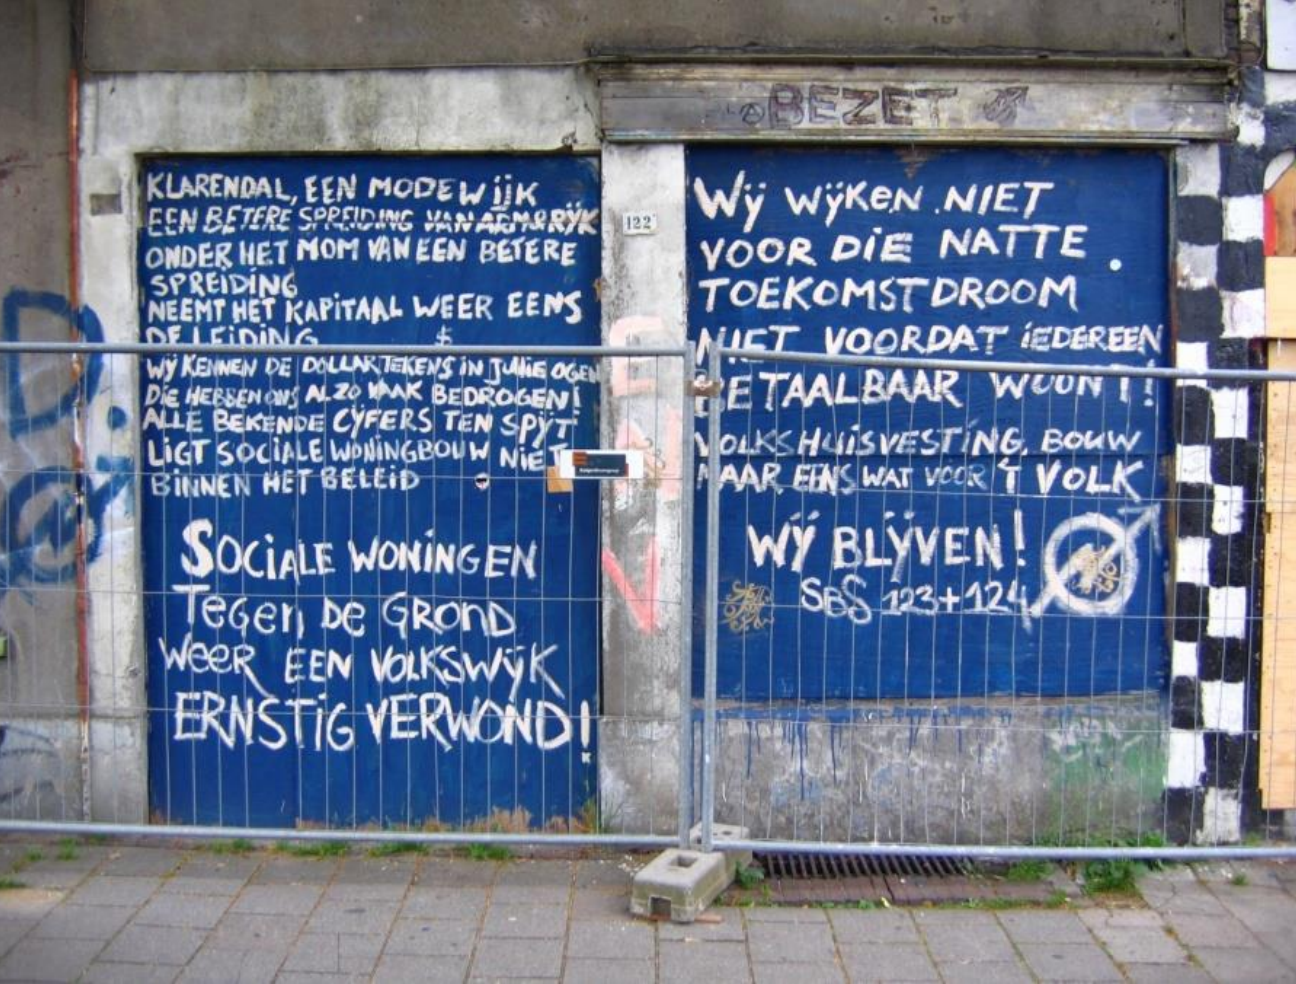 BEZET
KLARENDAL, EEN MODEWIJK
EEN BETERE SPREIDING VAN ARM & RIJK
ONDER HET MOM VAN EEN BETERE
SPREIDING
NEEMT HET KAPITAAL WEER EENS
DE LEIDING $
WIJ KENNEN DE DOLLARTEKENS IN JULLIE OGEN
DIE HEBBEN ONS AL ZO VAAK BEDROGEN!
ALLE BEKENDE CIJFERS TEN SPIJT
LIGT SOCIALE WONINGBOUW NIET
BINNEN HET BELEID
SOCIALE WONINGEN
TEGEN DE GROND
WEER EEN VOLKSWIJK
ERNSTIG VERWOND!
122
WIJ WIJKEN NIET
VOOR DIE NATTE
TOEKOMSTDROOM
NIET VOORDAT IEDEREEN
BETAALBAAR WOONT!!
VOLKSHUISVESTING, BOUW
MAAR EENS WAT VOOR 'T VOLK
WIJ BLIJVEN!
SBS 123+124